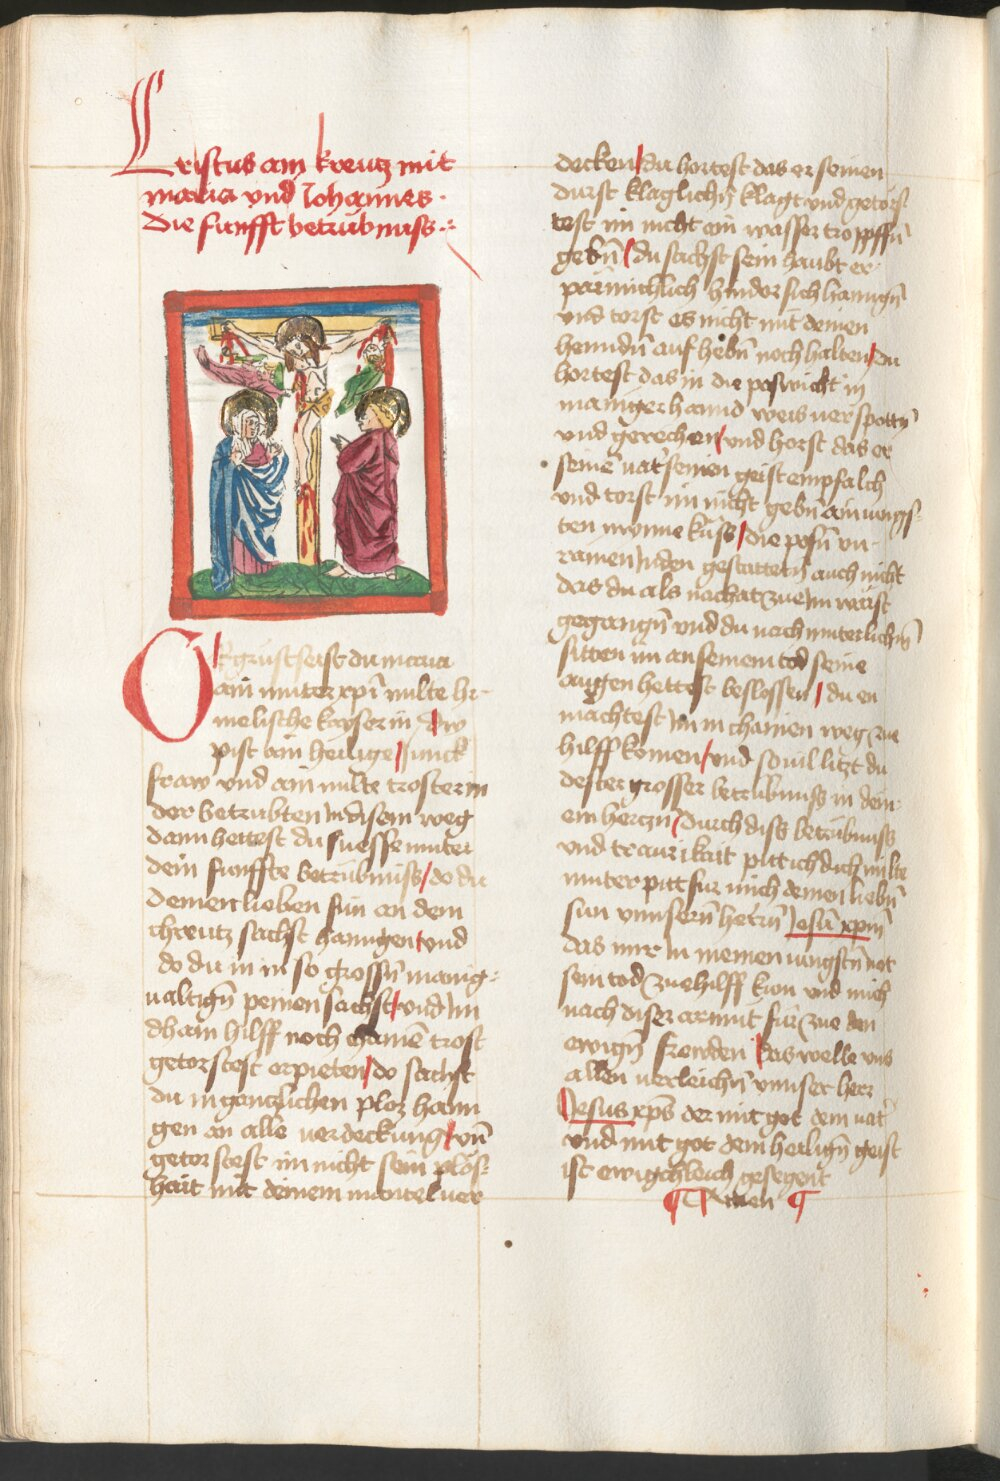 Cristus am kreutz mit
maria und Johannes.
die funfft betrubnuss.
O Gegrust seist du maria
ain muter xpi milte hi-
melische kayserin Dw
pist ain heilige junck
fraw und ain milte trosterin
der betrubten In disem weg
dann hettest du suesse muter
dein funffte betrubnuss / do du
deinen lieben sun an dem
chreutz sachst hanngen und
do du in in so grossn manig-
ualtign peinen sachst / vnd Im
chain hilff noch chainē trost
getorstest erpieten / do sachst
du in gantzlichen ploz hann
gen an alle verdeckung / vn̄
getorstest im nicht sein plos-
hait mit deinem mantel ver
decken / du hortest das er seinen
durst klaglichn̄ klagt vnd getors
test im nicht ein wasser troppffn̄
gebn̄ / du sachst sein haubt er-
parmichlich hinder sich hanngn̄
vnd torst es nicht mit deinen
henndn̄ auf hebn̄ noch halten / du
hortest das in die poswicht in
maniger hannd weis verspottn̄
vnd gerechen / vnd horst das er
seinē vat' seinen geist empfalch
vnd torst im nicht gebn̄ ain iungs-
ten mynne kuss / die posn̄ vn-
rainen Juden gestattetn̄ auch nicht
das du als nachat zue Im warst
gegangn̄ vnd du nach muterlichn̄
sitten im an seinem tod seine
augen hettest beslossen / du en
machtest Im in chainen weg zue
hilff komen / vnd souil litzt du
dester grosser betrubnuss in dein-
em herczn̄ / durch diss betrubnuss
vnd traurikait pitt ich dich milte
muter pitt fur mich deinen liebn̄
sun vnnsern̄ herrn̄ Jesū xpm̄
das mir in meinen iungstn̄ not
sein tod zue hilff kum vnd mich
nach diser armut für zue den
ewign̄ frewden / das welle vns
allen verleichn̄ vnnser herr
Jesus xps̄ der mit got dem vat'
vnd mit got dem heilign̄ geist
ist ewigchleich gesegent
Amen